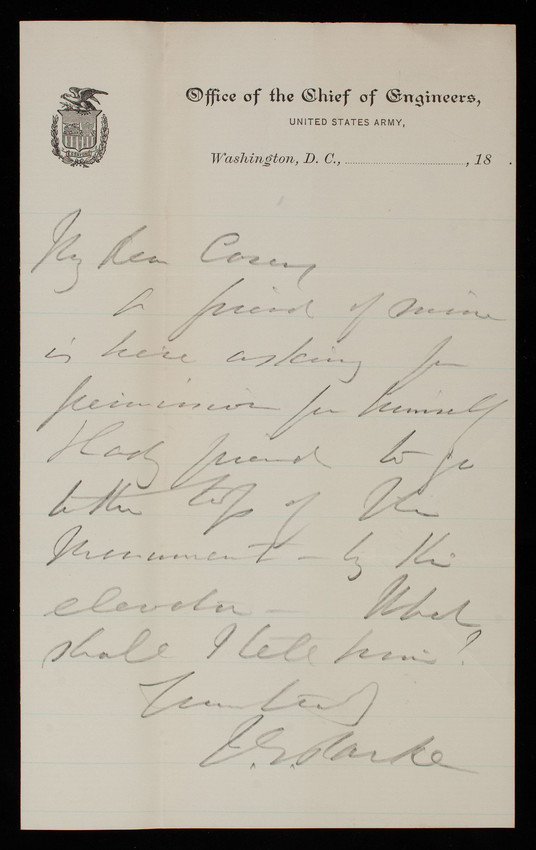 Office of the Chief of Engineers,
UNITED STATES ARMY,
Washington, D. C., , 18 .
My dear Casey
A friend of mine
is here asking for
permission for himself
& lady friend to go
to the top of the
Monument - by the
elevator - What
shall I tell him?
Yours truly
J. G. Parke